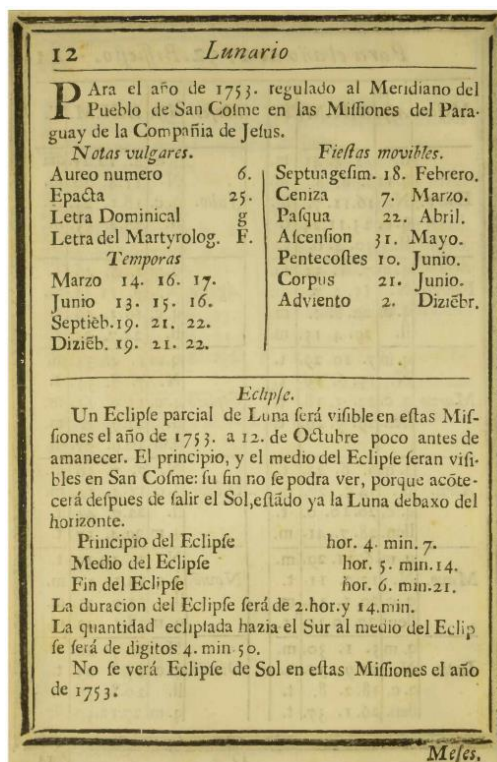 12 Lunario
PAra el año de 1753. regulado al Meridiano del
Pueblo de San Cosme en las Missiones del Para-
guay de la Compañia de Jesus.
Notas vulgares.
Aureo numero 6.
Epacta 25.
Letra Dominical g
Letra del Martyrolog. F.
Temporas
Marzo 14. 16. 17.
Junio 13. 15. 16.
Septiẽb. 19. 21. 22.
Diziẽb. 19. 21. 22.
Fiestas movibles.
Septuagesim. 18. Febrero.
Ceniza 7. Marzo.
Pasqua 22. Abril.
Ascension 31. Mayo.
Pentecostes 10. Junio.
Corpus 21. Junio.
Adviento 2. Diziẽbr.
Eclipse.
Un Eclipse parcial de Luna será visible en estas Mis-
siones el año de 1753. a 12. de Octubre poco antes de
amanecer. El principio, y el medio del Eclipse seran visi-
bles en San Cosme: su fin no se podra ver, porque acõte-
cerá despues de salir el Sol, estãdo ya la Luna debaxo del
horizonte.
Principio del Eclipse hor. 4. min. 7.
Medio del Eclipse hor. 5. min. 14.
Fin del Eclipse hor. 6. min. 21.
La duracion del Eclipse será de 2. hor. y 14. min.
La quantidad eclipsada hazia el Sur al medio del Eclip
se será de digitos 4. min 50.
No se verá Eclipse de Sol en estas Missiones el año
de 1753.
Meses,